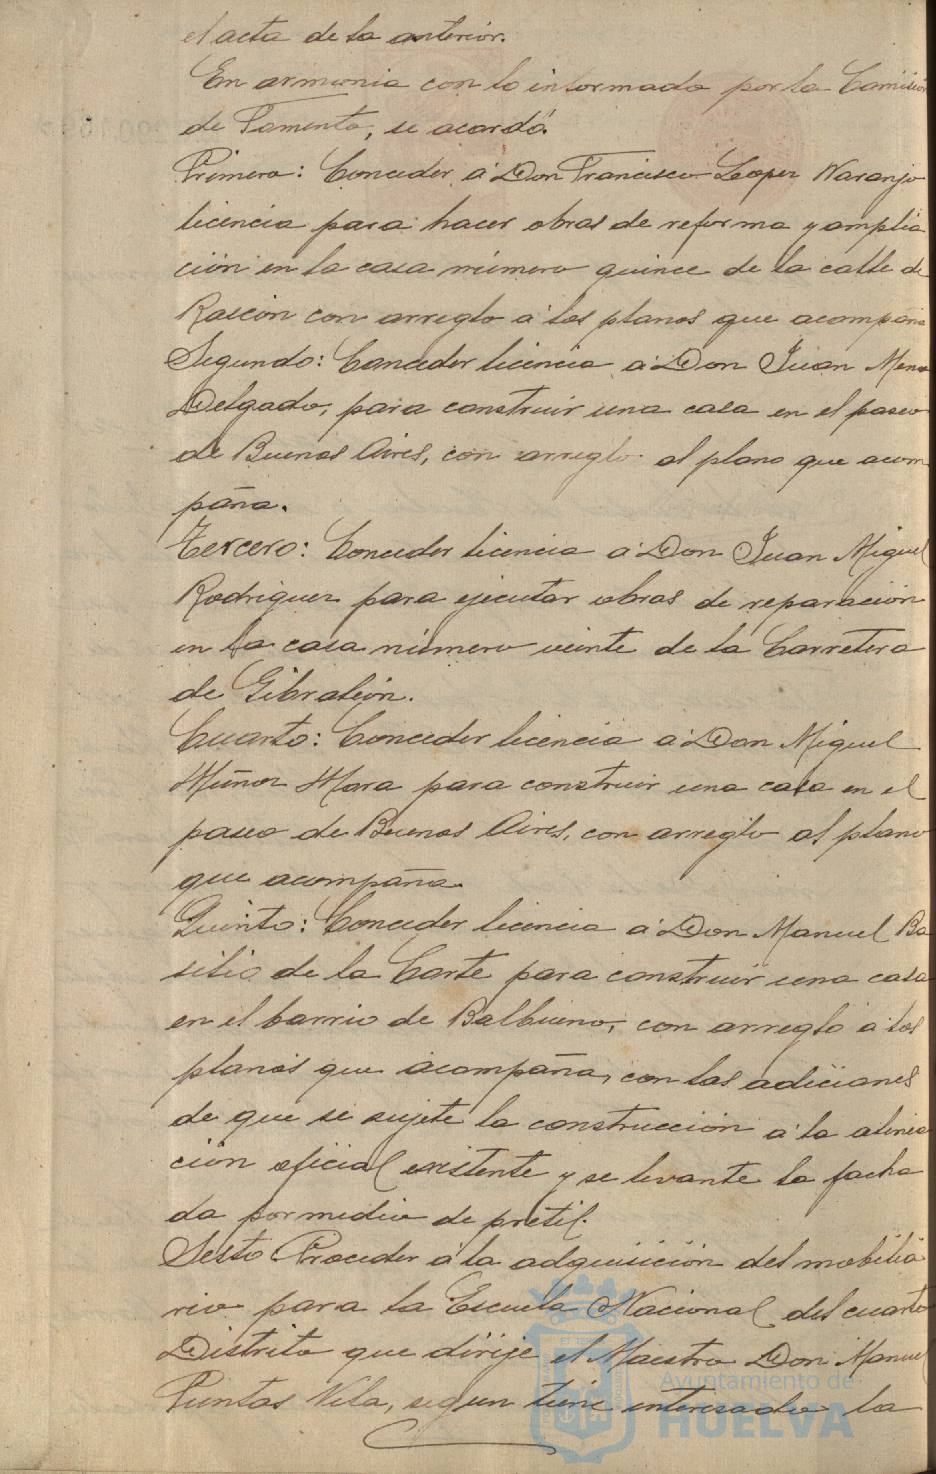 el acta de la anterior.
En armonia con lo informado por la Comision
de Fomento, se acordó.
Primero: Conceder á Don Francisco Lopez Naranjo
licencia para hacer obras de reforma y amplia
ción en la casa número quince de la calle de
Rascón con arreglo á los planos que acompaña
Segundo: Conceder licencia á Don Juan Mena
Delgado, para construir una casa en el paseo
de Buenos Aires, con arreglo al plano que acom
paña.
Tercero: Conceder licencia á Don Juan Miguel
Rodriguez para ejecutar obras de reparación
en la casa número veinte de la Carretera
de Gibraleón.
Cuarto: Conceder licencia á Don Miguel
Muñoz Mora para construir una casa en el
paseo de Buenos Aires, con arreglo al plano
que acompaña.
Quinto: Conceder licencia á Don Manuel Ba
silio de la Corte para construir una casa
en el barrio de Balbueno, con arreglo á los
planos que acompaña, con las adiciones
de que se sujete la construcción á la alinea
ción oficial existente y se levante la facha
da por medio de pretil.
Sesto Proceder á la adquisición del mobilia
rio para la Escuela Nacional del cuarto
Distrito que dirije el Maestro Don Manuel
Puntas Vela, segun tiene interesado la
Ayuntamiento de
HUELVA